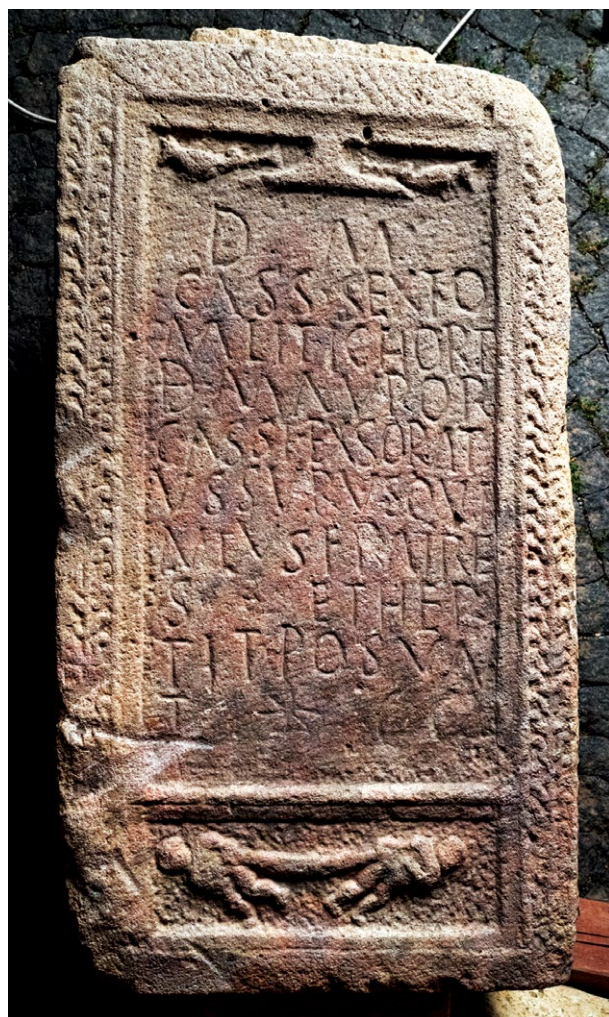 D M
CASS SENTO
MILITI CHORT
D MAVROR
CASS FENSOR AT
VSSVRVSQVI
NTVS FRATRE
S ET HER
TIT POSVA
T